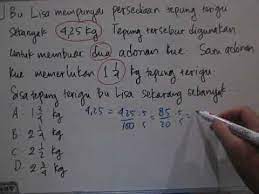 Bu Lisa mempunyai persediaan tepung terigu
Sebanyak 4,25 kg Tepung tersebut digunakan
Untuk membuat dua adonan kue Satu adonan
Kue memerlukan 1 1/4 kg tepung terigu.
Sisa tepung terigu bu Lisa sekarang sebanyak
A. 1 3/4 kg 4,25 = 425:5/100:5 = 85:5/20:5 =
B. 2 1/4 kg
C. 2 1/2 kg
D. 2 3/4 kg